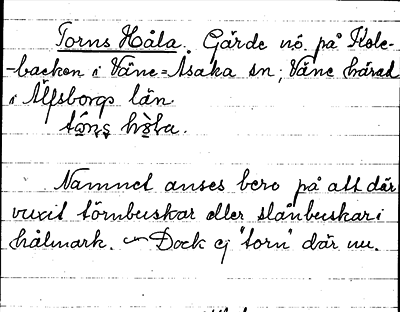 Torns Håla. Gärde nö. på Kole-
-backen i Väne-Åsaka sn; Väne härad
i Älfsborgs län.

Namnet anses bero på att där
vuxit törnbuskar eller slånbuskar i
hålmark. — Dock ej "torn" där nu.